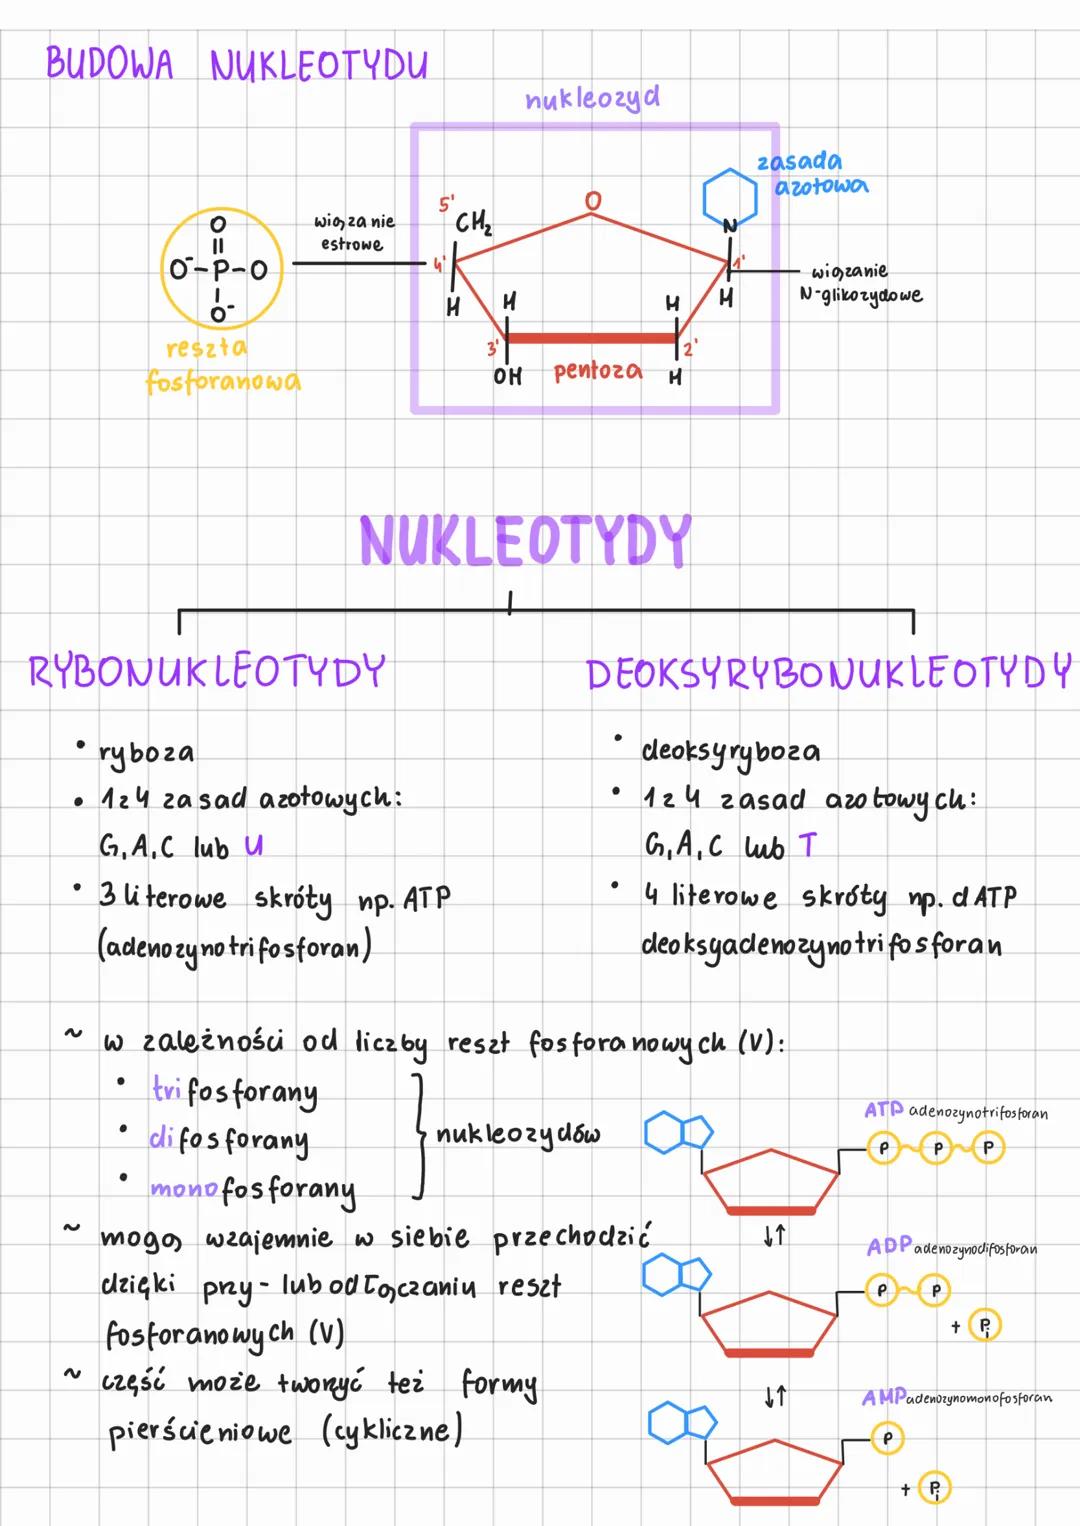 BUDOWA NUKLEOTYDU
nukleozyd
zasada
azotowa
wiązanie
estrowe
5'
CH₂
O
N
O
||
O⁻-P-O
|
O⁻
4'
1'
H
H
H
H
wiązanie
N-glikozydowe
3'
2'
OH
pentoza
H
reszta
fosforanowa
NUKLEOTYDY
RYBONUKLEOTYDY
• ryboza
• 1z4 zasad azotowych:
G,A,C lub U
• 3 literowe skróty np. ATP
(adenozynotrifosforan)
DEOKSYRYBONUKLEOTYDY
• deoksyryboza
• 1z4 zasad azotowych:
G,A,C lub T
• 4 literowe skróty np. dATP
deoksyadenozynotrifosforan
~ w zależności od liczby reszt fosforanowych (V):
• trifosforany
• difosforany
• monofosforany
} nukleozydów
~ mogą wzajemnie w siebie przechodzić
dzięki przy- lub odłączaniu reszt
fosforanowych (V)
~ część może tworzyć też formy
pierścieniowe (cykliczne)
ATP adenozynotrifosforan
P P P
↓↑
ADP adenozynodifosforan
P P
+ Pi
↓↑
AMP adenozynomonofosforan
P
+ Pi